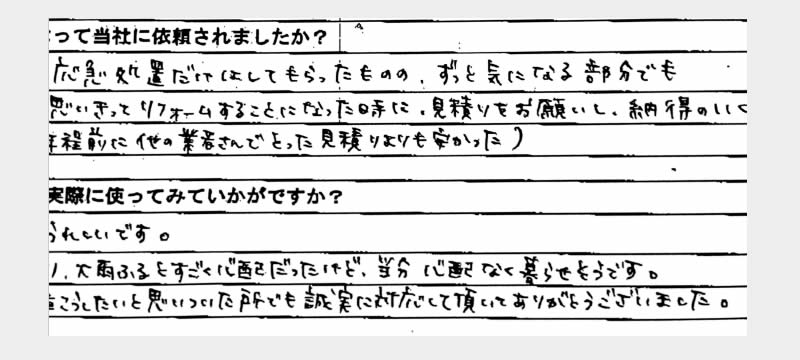 って当社に依頼されましたか？
応急処置だけはしてもらったものの、ずっと気になる部分でも
思いきってリフォームすることになった時に、見積りをお願いし、納得のいく
程前に他の業者さんでとった見積りよりも安かった）
実際に使ってみていかがですか？
うれしいです。
り、大雨ふるとすごく心配だったけど、当分 心配なく暮らせそうです。
こうしたいと思いついた所でも誠実に対応して頂いてありがとうございました。